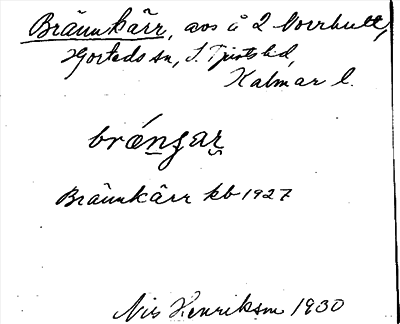 Brännkärr, avs å 2 Overhult,
Hjorteds sn, S. Tjusts hd,
Kalmar l.
brǽn̲gar̮
Brännkärr kb 1927
Nils Henriksson 1930